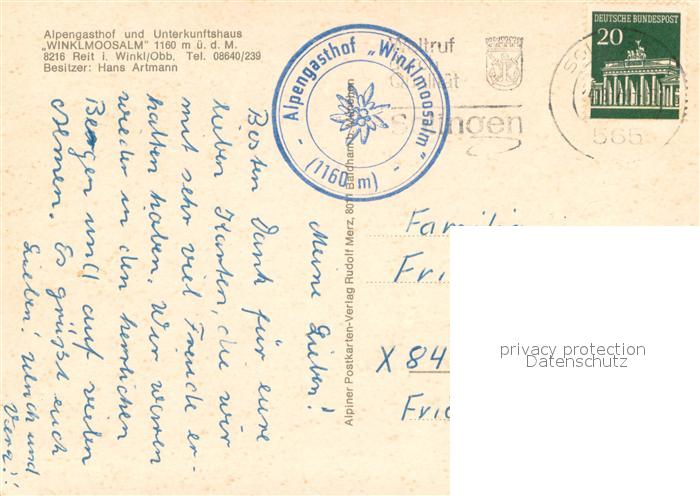 Alpengasthof und Unterkunftshaus
„WINKLMOOSALM" 1160 m ü. d. M.
8216 Reit i. Winkl/Obb, Tel. 08640/239
Besitzer: Hans Artmann
Alpengasthof „Winklmoosalm"
- (1160 m) -
DEUTSCHE BUNDESPOST
20
565
Meine Lieben!
Besten Dank für eure
lieben Karten, die wir
mit sehr viel Freude er-
halten haben. Wir waren
wieder in den herrlichen
Bergen und auf vielen
Almen. Es grüßt euch
Lieben! Ulrich und
Vera!!
Alpiner Postkarten-Verlag Rudolf Merz, 8011 Baldham
Familie
Fri
X 84
Frie
privacy protection
Datenschutz